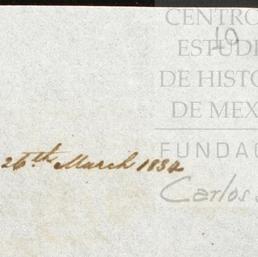 CENTRO
19
ESTUD
DE HISTO
DE MEX
FUNDAC
26th March 1832
Carlos